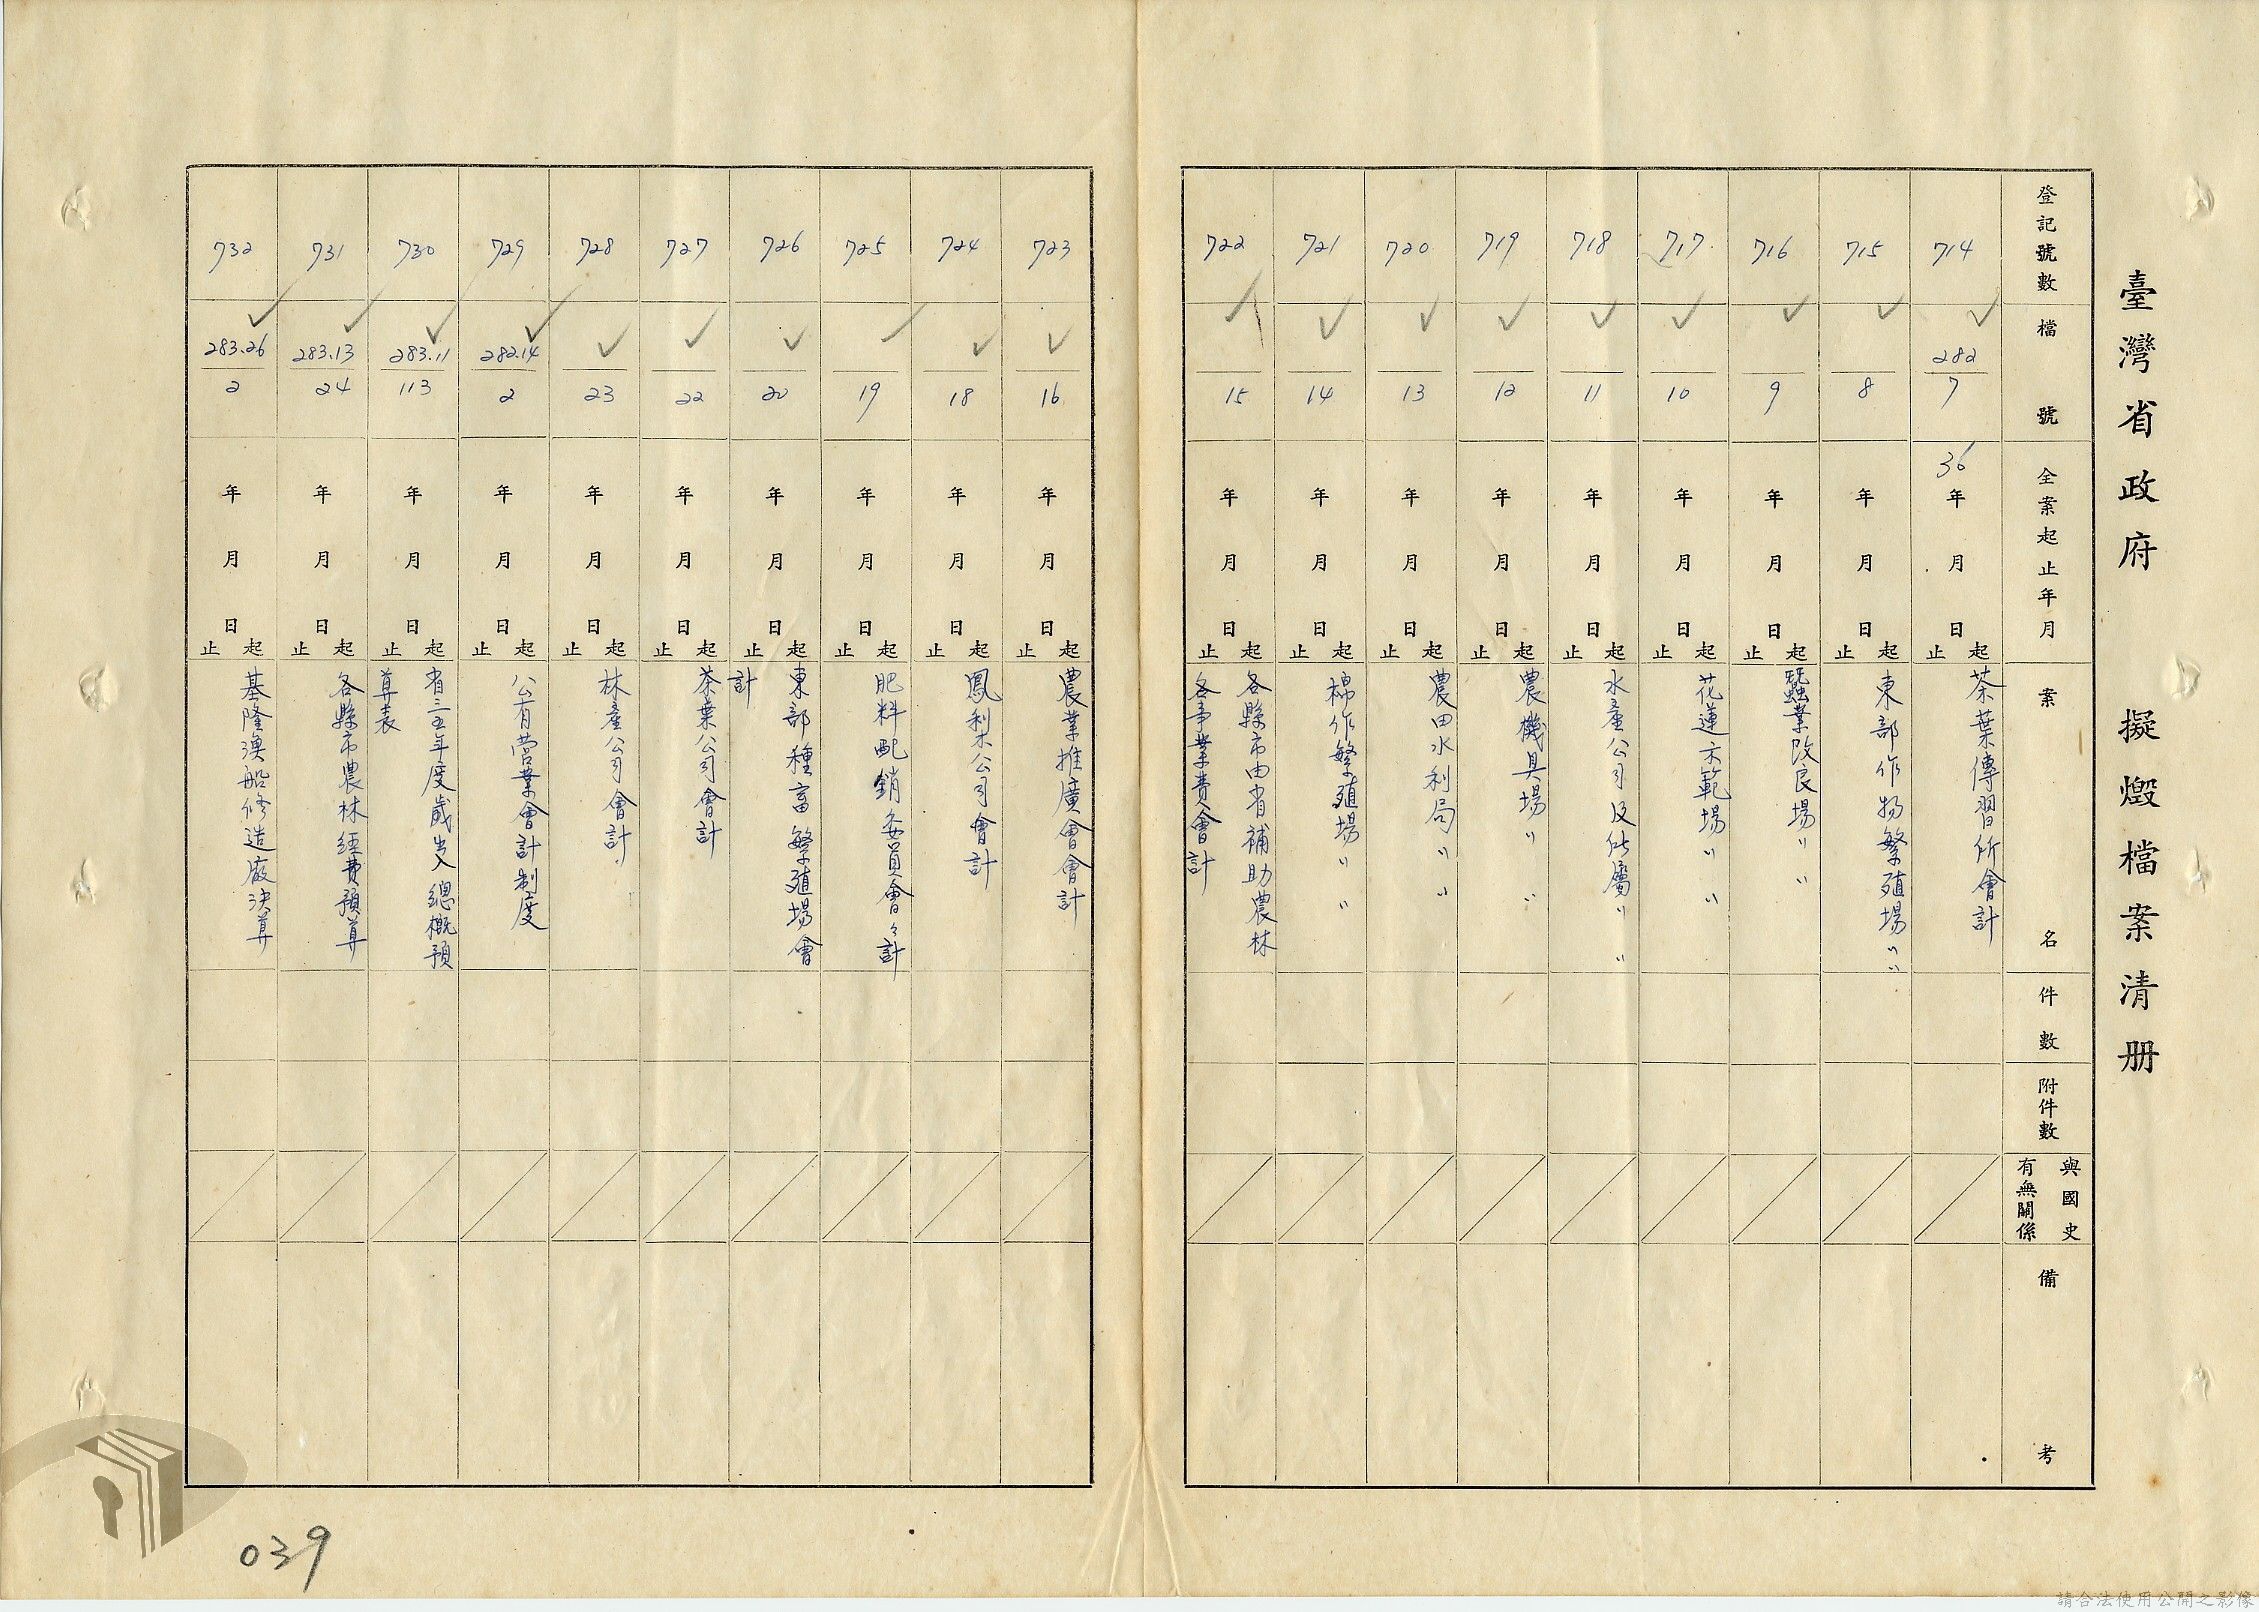 臺灣省政府 擬燬檔案清册
登記號數 檔號 全案起止年月 案名 件數 附件數 與國史有無關係 備考
714 282/7 36年 月 日起止 茶葉傳習所會計
715 8 年 月 日起止 東部作物繁殖場〃〃
716 9 年 月 日起止 蠶業改良場〃〃
717 10 年 月 日起止 花蓮示範場〃〃
718 11 年 月 日起止 水產公司及所屬〃〃
719 12 年 月 日起止 農機具場〃〃
720 13 年 月 日起止 農田水利局〃〃
721 14 年 月 日起止 棉作繁殖場〃〃
722 15 年 月 日起止 各縣市由省補助農林
各事業費會計
723 16 年 月 日起止 農業推廣會會計
724 18 年 月 日起止 鳳利木公司會計
725 19 年 月 日起止 肥料配銷委員會々計
726 20 年 月 日起止 東部種畜繁殖場會
計
727 22 年 月 日起止 茶葉公司會計
728 23 年 月 日起止 林產公司會計
729 282.14/2 年 月 日起止 公有营業會計制度
730 283.11/113 年 月 日起止 省三五年度歲出入總概預
算表
731 283.13/24 年 月 日起止 各縣市農林經費預算
732 283.26/2 年 月 日起止 基隆漁船修造廠決算
039
請合法使用公開之影像